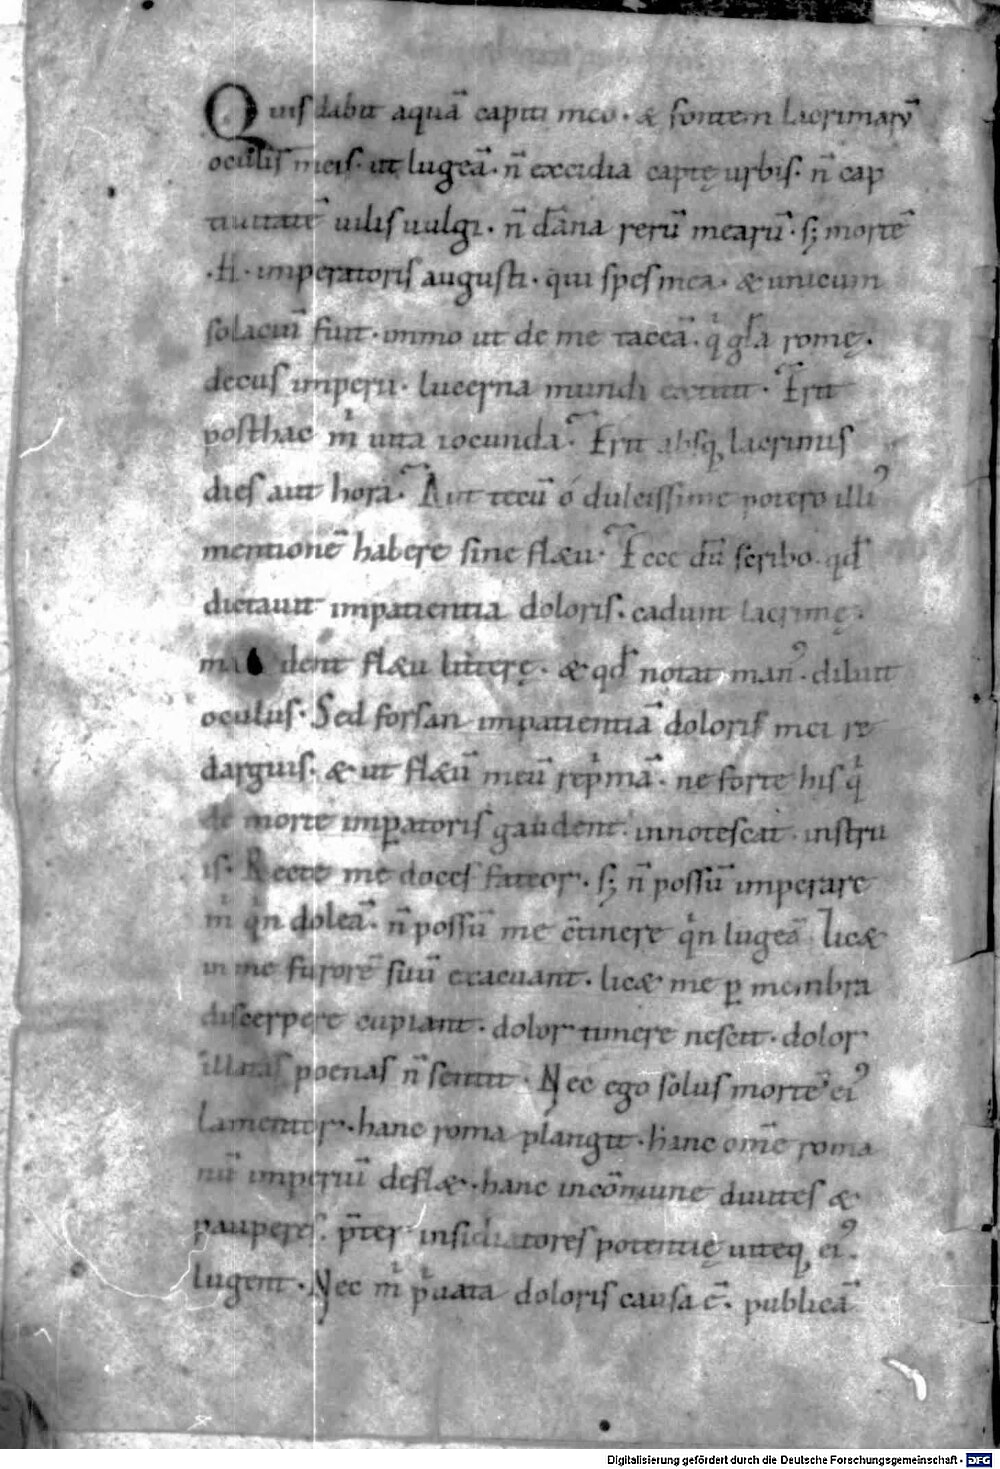 Quis dabit aquā capiti meo · & fontem lacrimarū
oculis meis · ut lugeā · n̄ excidia captę urbis · n̄ cap
tiuitatē uilis uulgi · n̄ dāna rerū mearū · sꝫ mortē
· H · imperatoris augusti · qui spes mea · & unicum
solaciū fuit · immo ut de me taceā · qͥ gl̄a romę ·
decus imperii · lucerna mundi extitit · Erit
posthac mͥ uita iocunda · Erit absq; lacrimis
dies aut hora · Aut tecū ó dulcissime potero illiꝰ
mentionē habere sine fl&u · Ecce dū scribo qd̄
dictauit impatientia doloris · cadunt lacrimę ·
madent fl&u litterę · & qd̄ notat manꝰ · diluit
oculus · Sed forsan impatientiā doloris mei re
darguis · & ut fl&ū meū rep̄mā · ne forte his qͥ
de morte imꝑatoris gaudent · innotescat · instru
is · Recte me doces fateor · sꝫ n̄ possū imperare
mͥ qͥn doleā · n̄ possū me c̄tinere qͥn lugeā Lic&
in me furorē suū exacuant · lic& me ꝑ membra
discerpere cupiant · dolor timere nescit · dolor
illatas poenas n̄ sentit · Nec ego solus mortē eiꝰ
lamentor · hanc roma plangit · hanc om̄e roma
nū imperiū defl& · hanc incōmune diuites &
pauperes · p̄ter insidiatores potentię uiteq; eiꝰ ·
lugent · Nec mͥ pͥuata doloris causa ē · publicā
Digitalisierung gefördert durch die Deutsche Forschungsgemeinschaft - DFG